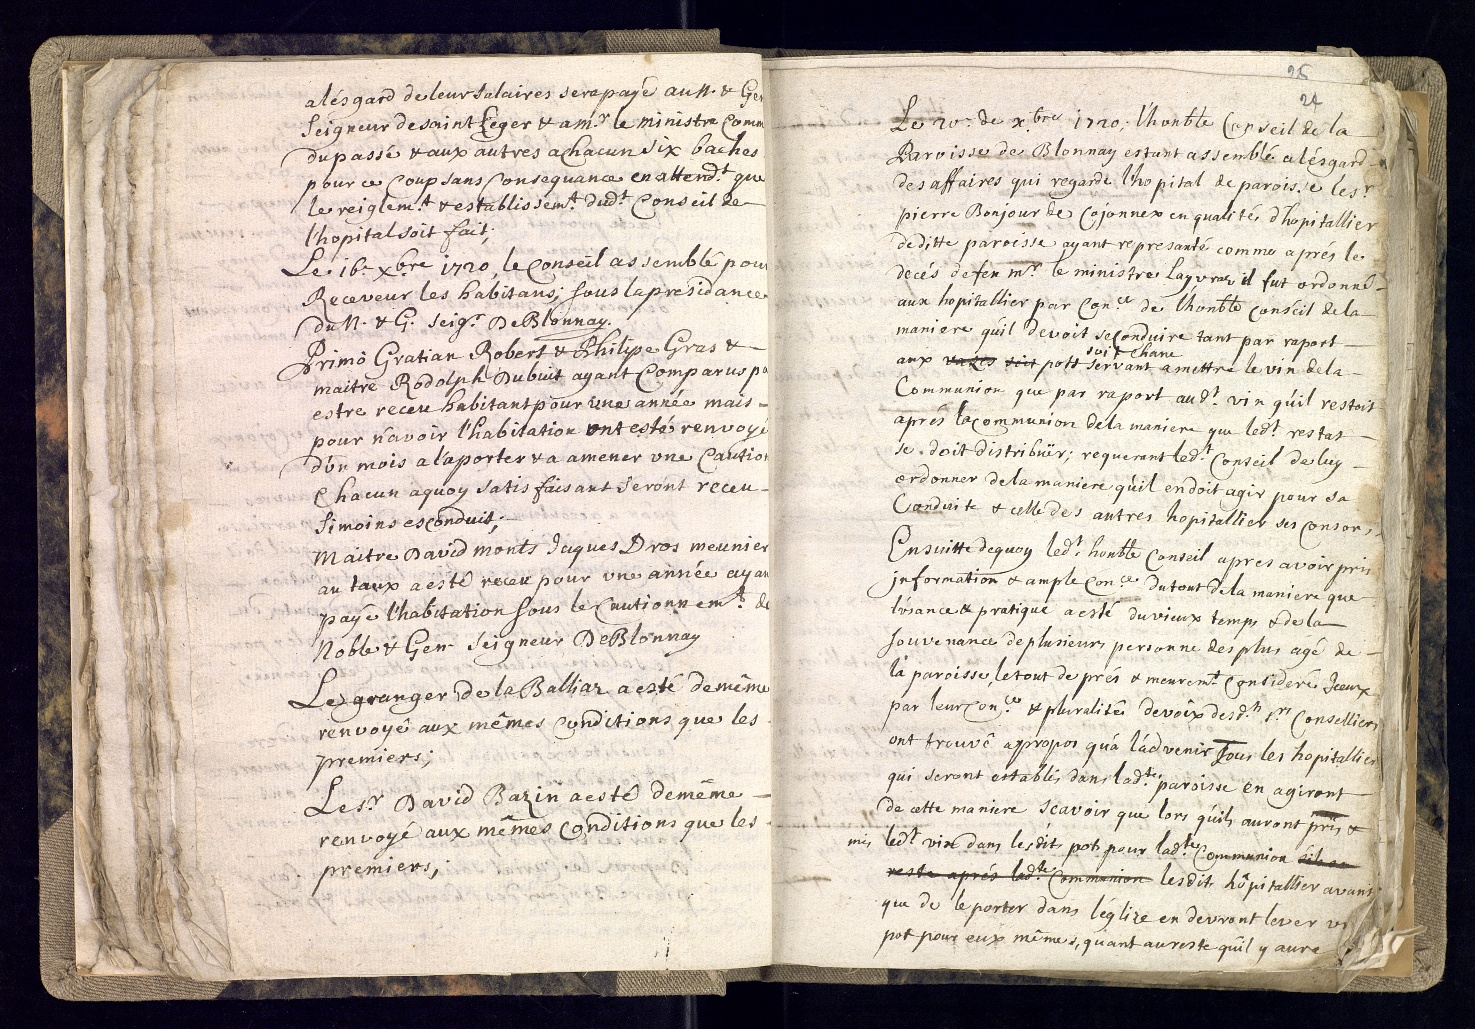 alésgard de leur salaires sera payé au N. & Gen
Seigneur de saint Leger & a mr. le ministre Comm
du passé & aux autres a Chacun six baches
pour ce Coup sans Consequance en attend.t que
le reiglem.t & establissem.t dud.t Conseil de
l'hopital soit fait;
Le 16e xbre 1720, le Conseil assemblé pour
Receveur les habitans; sous la présidance
du N. & G. seigr. De Blonnay.
Primò Gratian Robert & Philipe Gras &
maitre Rodolph Dubuit ayant Comparus po
estre receu habitant pour une année mais
pour n'avoir l'habitation ont esté renvoyé
d'un mois a l'aporter & a amener une Caution
Chacun aquoy satisfaisant seront receu
Simoins esconduit;
Maitre David monts Jaques Dros meunier
au taux a esté receu pour une année ayan
payé l'habitation sous le Cautionnem.t de
Noble & Gen. Seigneur De Blonnay
Le granger de la Balliaz a esté de même
renvoyé aux mêmes Conditions que les
premiers;
Le sr. David Bazin a esté de même
renvoyé aux mêmes Conditions que les
premiers;
25
24
Le 20e. de xbre 1720; l'honble Conseil de la
Paroisse de Blonnay estant assemblé a lésgard
des affaires qui regarde l'hopital de paroisse le sr.
pierre Bonjour de Cojonnex en qualités d'hopitallier
de ditte paroisse ayant represanté comme aprés le
decés de feu mr. le ministre Layvraz il fut ordonné
aux hopitallier par Con.ce de l'honble Conseil de la
maniere qu'il devoit se Conduire tant par raport
soit Chane
aux vases soit pott servant a mettre le vin de la
Communion que par raport aud.t vin qu'il restoit
aprés la Communion de la maniere que led.t restat
se doit distribüer; requerant led.t Conseil de luy
ordonner de la maniere qu'il en doit agir pour sa
Conduite & celle des autres hopitallier ses consors,
Ensuitte de quoy led.t honble Conseil apres avoir pris
jnformation & ample Con.ce du tout de la maniere que
l'usance & pratique a esté du vieux temps & de la
souvenance de plusieurs personne des plus agé de
la paroisse, le tout de prés & meurem.t Consideré Jceux
par leur Con.ce & pluralités de voix des d.ts srs Conselliers
ont trouvé appropos qu'a l'advenir Tous les hopitallier
qui seront establis dans lad.te paroisse en agiront
de cette maniere scavoir que lors qu'ils auront pris &
mis led.t vin dans lesdits pots pour lad.te Communion
reste aprés lad.te Communion lesdits hôpitallier avant
que de le porter dans léglize en devront lever un
pot pour eux mêmes, quant au reste qu'il y aura